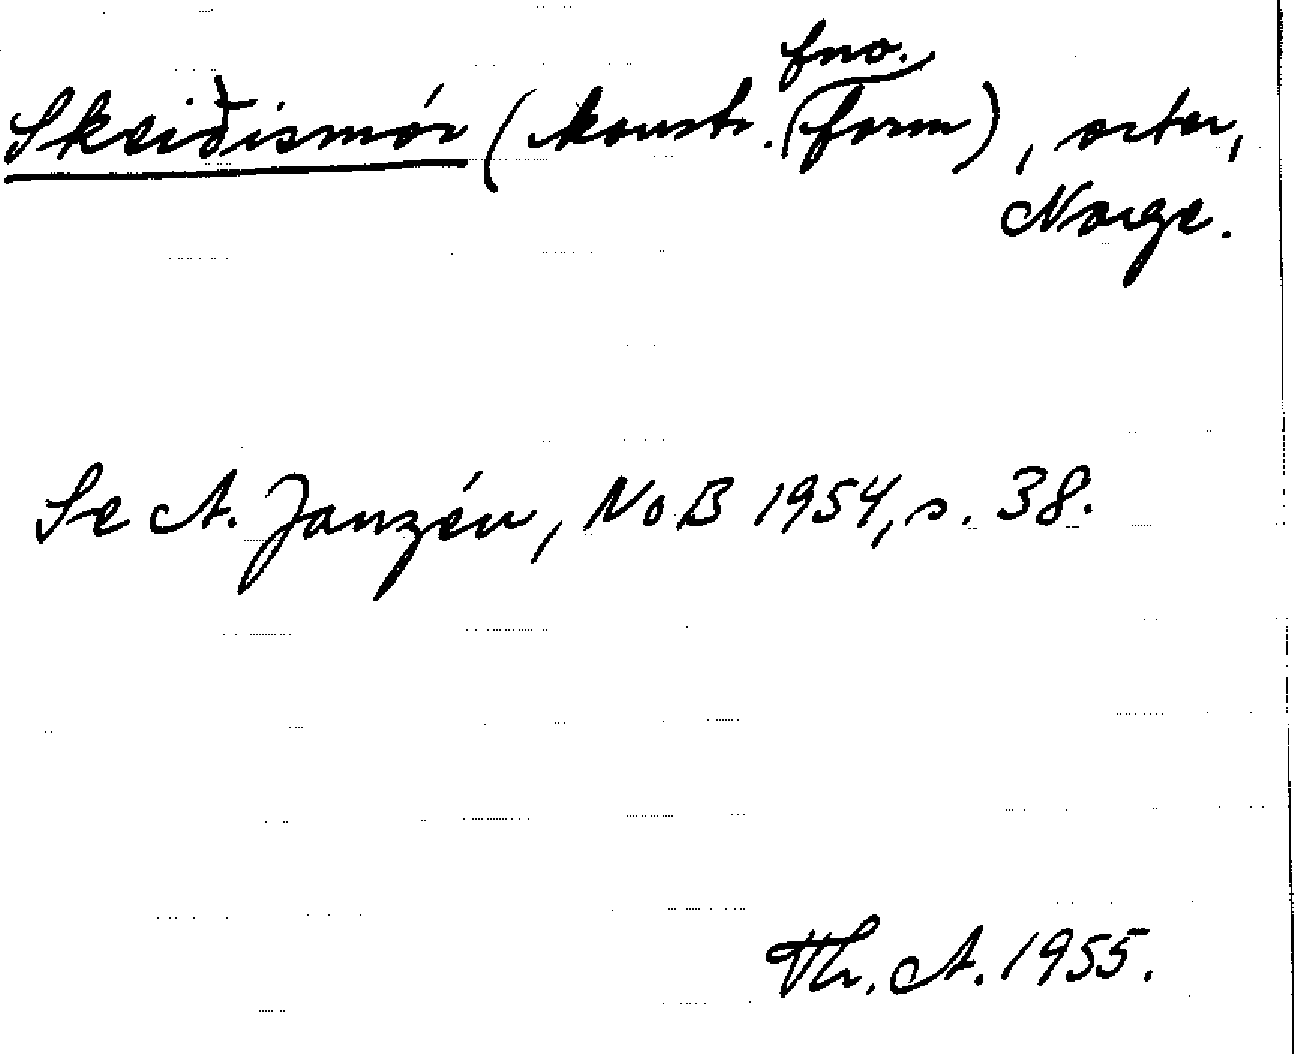 Skeiðismór (konstr. fno. form), orter,
Norge.
Se A. Janzén, NoB 1954, s. 38.
Th. A. 1955.